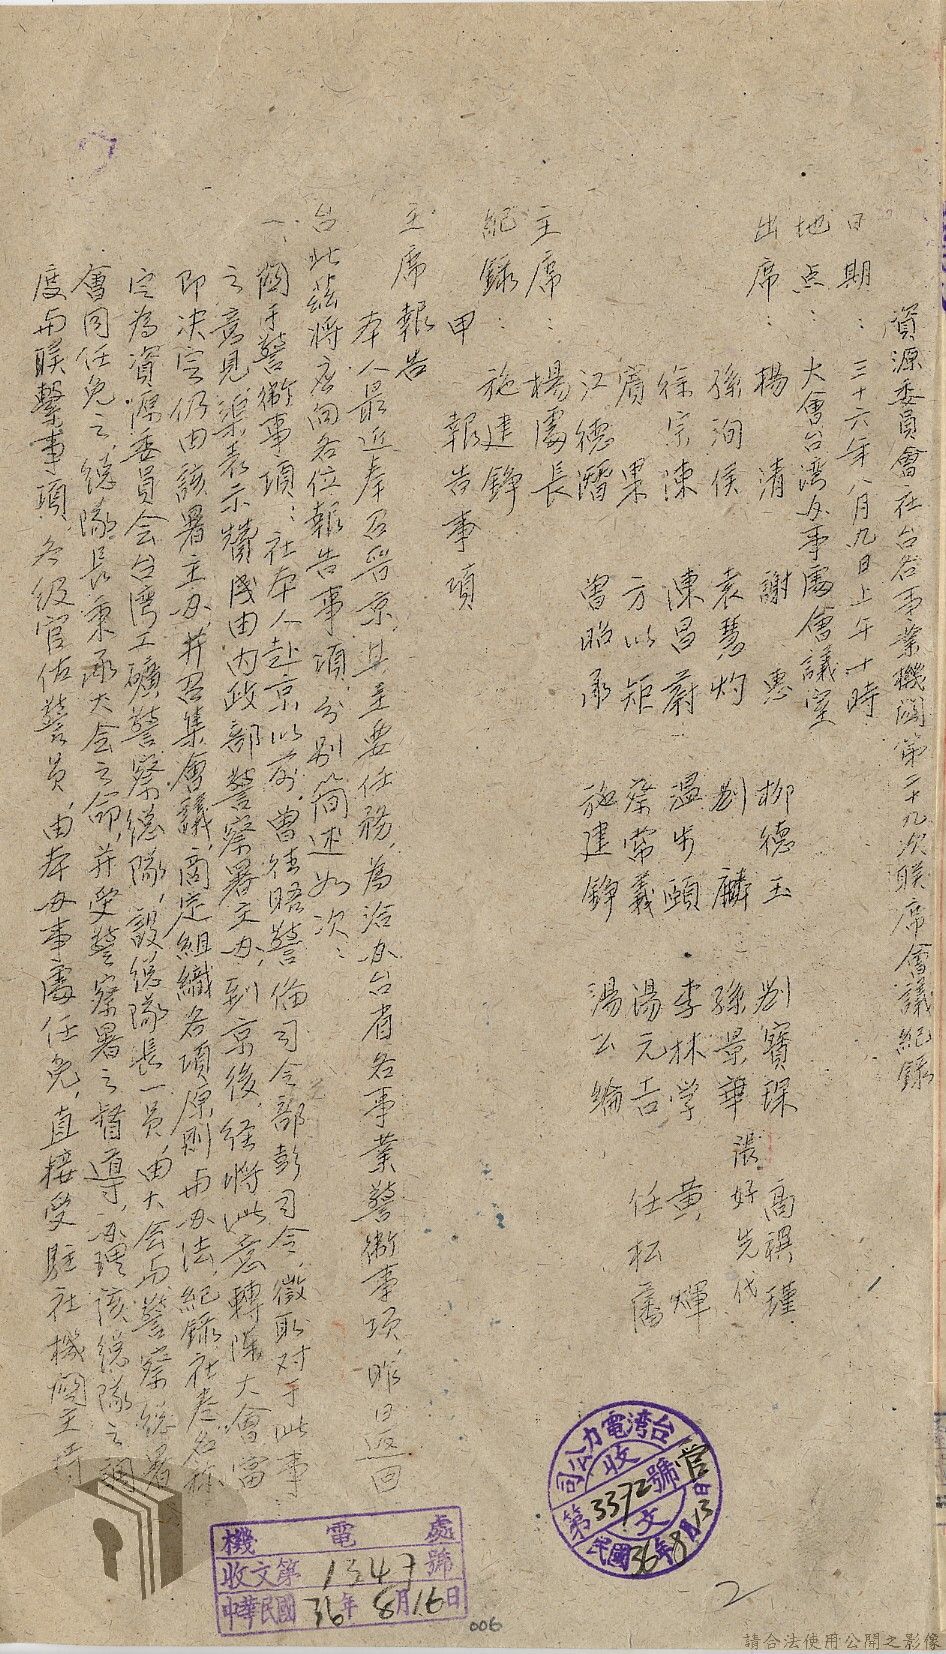 資源委員會在台各事業機關第二十九次联席會議紀錄
日期：三十六年八月九日上午十時
地点：大會台湾办事處會議室
出席：楊清 謝惠 柳德玉 劉寶琛 高禩瑾
孫洵侯 袁慧灼 劉麟 孫景華 張好先代
徐宗陳 陳昌蔚 温步頤 李林学 黄煇
賓果 方以矩 蔡常義 湯元吉 任松藩
江德潛 曾昭承 施建錚 湯公綸
主席：楊處長
紀錄：施建錚
甲 報告事項
主席報告
本人最近奉召晉京，其主要任務，為洽办台省各事業警衛事項，昨日返回
台北，茲將應向各位報告事項，分别简述如次：
一、關于警衛事項：在本人赴京以前，曾往晤警備司令部彭司令，徵取对于此事
之意見，渠表示贊成由内政部警察署主办，到京後，经將此意轉陳大會，當
即决定仍由該署主办，并召集會議，商定組織各項原則与办法，紀錄在卷，名称
定為資源委員会台湾工礦警察総隊，設総隊長一員，由大会与警察総署
會同任免之，総隊長秉承大会之命，并受警察署之督導，办理該総隊之調
度与联繫事項，各級官佐警员，由本办事處任免，直接受駐在機關主持
台湾電力公司
收文
第3372號
民國36年8月13日
機電處
收文第1347號
中華民國36年8月16日
2
006
請合法使用公開之影像